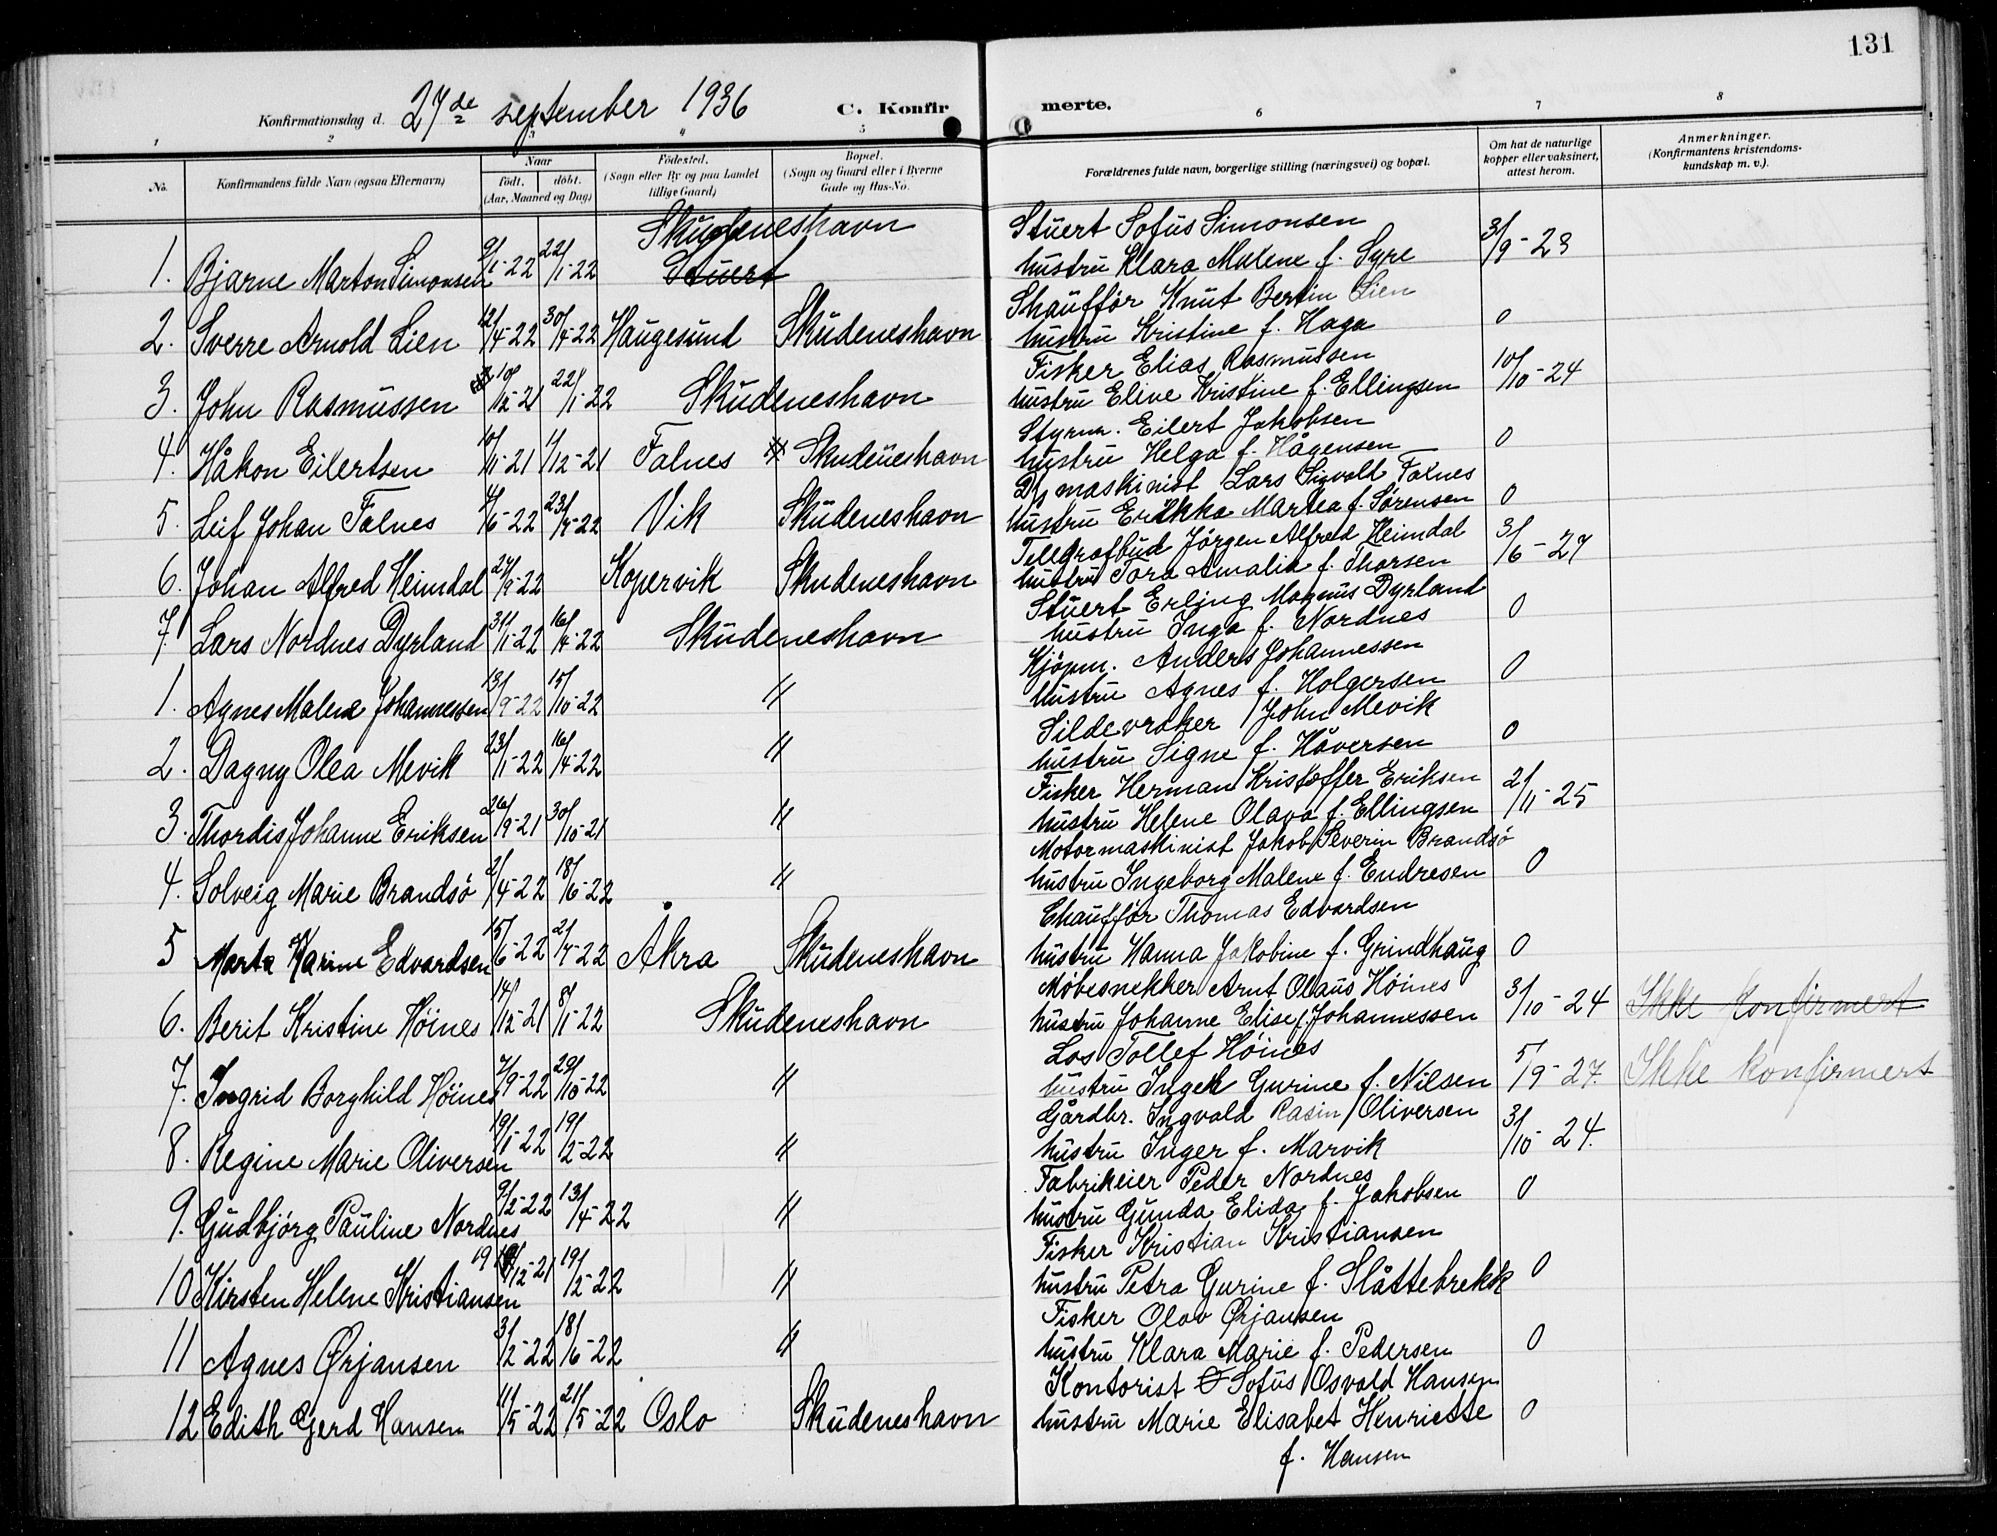 131
Konfirmationsdag d. 27de september 1936 C. Konfirmerte.
1 2 3 4 5 6 7 8
No.
Konfirmandens fulde Navn (ogsaa Efternavn)
Naar
født. døbt.
(Aar, Maaned og Dag)
Fødested.
(Sogn eller By og paa Landet
tillige Gaard)
Bopæl.
(Sogn og Gaard eller i Byerne
Gade og Hus-No.
Forældrenes fulde navn, borgerlige stilling (næringsvei) og bopæl.
Om hat de naturlige
kopper eller vaksinert,
attest herom.
Anmerkninger.
(Konfirmantens kristendoms-
kundskap m. v.).
Skudeneshavn Stuert Sofus Simonsen
1. Bjarne Marton Simonsen 9/1-22 22/1-22 Stuert hustru Klara Malene f. Syre 3/9-23
Shauffør Knut Bertin Lien
2. Sverre Arnold Lien 12/4-22 30/4-22 Haugesund Skudeneshavn hustru Kristine f. Haga 0
Fisker Elias Rasmussen
3. John Rasmussen 10/12-21 22/1-22 Skudeneshavn hustru Eline Kristine f. Ellingsen 10/10-24
Styrm. Eilert Jakobsen
4. Håkon Eilertsen 10/11-21 11/12-21 Falnes Skudeneshavn hustru Helga f. Hågensen 0
D/s maskinist Lars Sigvald Falnes
5. Leif Johan Falnes 4/6-22 23/7-22 Vik Skudeneshavn hustru Erikka Martea f. Sørensen 0
Telegrafbud Jørgen Alfred Heimdal
6. Johan Alfred Heimdal 24/9-22 Kopervik Skudeneshavn hustru Tora Amalia f. Thorsen 3/6-27
Stuert Erling Magnus Dyrland
7. Lars Nordnes Dyrland 31/1-22 16/4-22 Skudeneshavn hustru Inga f. Nordnes 0
Kjøpm. Anders Johannessen
1. Agnes Malene Johannessen 13/9-22 15/10-22 " hustru Agnes f. Holgersen 0
Sildevraker John Mevik
2. Dagny Olea Mevik 23/1-22 16/4-22 " hustru Signe f. Håversen 0
Fisker Herman Kristoffer Eriksen
3. Thordis Johanne Eriksen 26/9-21 30/10-21 " hustru Helene Olava f. Ellingsen 21/11-25
Motormaskinist Jakob Severin Brandsø
4. Solveig Marie Brandsø 2/4-22 18/6-22 " hustru Ingeborg Malene f. Endresen 0
Chauffør Thomas Edvardsen
5 Marta Karine Edvardsen 15/6-22 2/7-22 Åkra Skudeneshavn hustru Hanna Jakobine f. Grindhaug 0
Møbesnekker Arnt Olaus Høines
6. Berit Kristine Høines 14/12-21 8/1-22 Skudeneshavn hustru Johanne Elise f. Johannessen 3/10-24 Ikke konfirmert
Los Tollef Høines
7. Ingrid Borghild Høines 7/9-22 29/10-22 " hustru Inger Gurine f. Nilsen 5/9-27. Ikke konfirmert
Gårdbr. Ingvald Rasin Oliversen
8. Regine Marie Oliversen 19/1-22 19/2-22 " hustru Inger f. Marvik 3/10-24.
Fabrikeier Peder Nordnes
9. Gudbjørg Pauline Nordnes 9/2-22 13/4-22 " hustru Gunda Elida f. Jakobsen 0
Fisker Kristian Kristiansen
10 Kirsten Helene Kristiansen 19/12-21 19/2-22 " hustru Petra Gurine f. Slåttebrekk 0
Fisker Olav Ørjansen
11 Agnes Ørjansen 3/2-22 18/6-22 " hustru Klara Marie f. Pedersen 0
Kontorist Sofus Osvald Hansen
12 Edith Gerd Hansen 11/5-22 21/5-22 Oslo Skudeneshavn hustru Marie Elisabet Henriette 0
f. Hansen